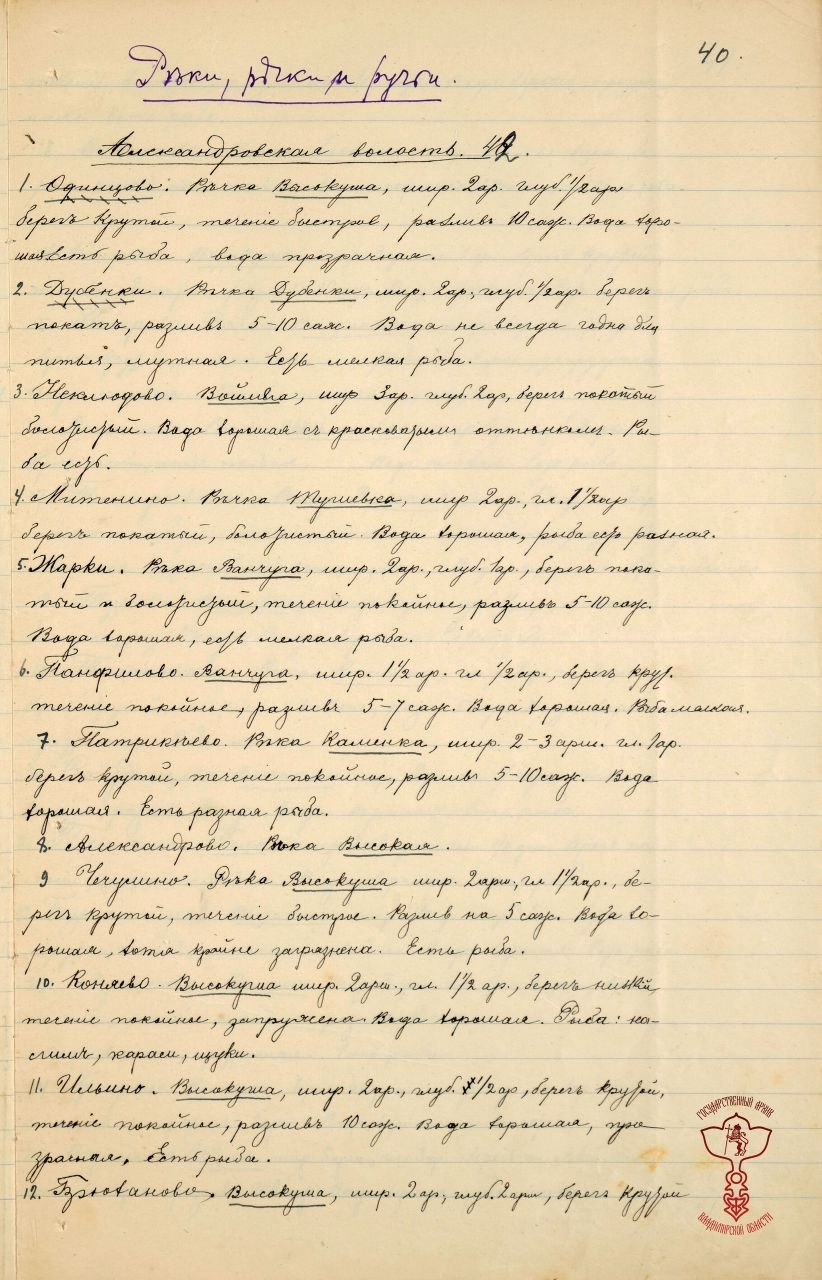 40.
Рѣки, рѣчки и ручьи.
Александровская волость. 42.
1. Одинцово. Рѣчка Высокуша, шир. 2 ар. глуб. 1/2 ара
берегъ крутой, теченіе быстрое, разливъ 10 саж. Вода хоро-
шая Есть рыба, вода прозрачная.
2. Дубенки. Рѣчка Дубенки, шир. 2 ар., глуб. 1/2 ар. берегъ
покатъ, разливъ 5-10 саж. Вода не всегда годна для
питья, мутная. Есть мелкая рыба.
3. Неклюдово. шир 3 ар. глуб. 2 ар, берегъ покатый
болотистый. Вода хорошая съ красноватымъ оттѣнкомъ. Ры-
ба есть.
4. Митенино. Рѣчка шир 2 ар., гл. 1 1/2 ар
берегъ покатый, болотистый. Вода хорошая, рыба есть разная.
5. Жарки. Рѣка Ванчуга, шир. 2 ар., глуб. 1 ар., берегъ пока-
тый и болотистый, теченіе покойное, разливъ 5-10 саж.
Вода хорошая, есть мелкая рыба.
6. Панфилово. Ванчуга, шир. 1 1/2 ар. гл 1/2 ар., берегъ крут.
теченіе покойное, разливъ 5-7 саж. Вода хорошая. Рыба мелкая.
7. Патрикѣево. Рѣка Каменка, шир. 2-3 арш. гл. 1 ар.
берегъ крутой, теченіе покойное, разливъ 5-10 саж. Вода
хорошая. Есть разная рыба.
8. Александрово. Рѣка Высокая.
9 Чечулино. Рѣка Высокуша шир. 2 арш., гл 1 1/2 ар., бе-
регъ крутой, теченіе быстрое. Разлив на 5 саж. Вода хо-
рошая, хотя крайне загрязнена. Есть рыба.
10. Коняево. Высокуша шир. 2 арш., гл. 1 1/2 ар., берегъ низкій,
теченіе покойное, запружена. Вода хорошая. Рыба: на-
лимъ, караси, щуки.
11. Ильино. Высокуша, шир. 2 ар., глуб. 1/2 ар, берегъ крутой,
теченіе покойное, разливъ 10 саж. Вода хорошая, про
зрачная. Есть рыба.
12. Брюханово. Высокуша, шир. 2 ар., глуб. 2 арш, берегъ крутой
ГОСУДАРСТВЕННЫЙ АРХИВ
ВЛАДИМИРСКОЙ ОБЛАСТИ